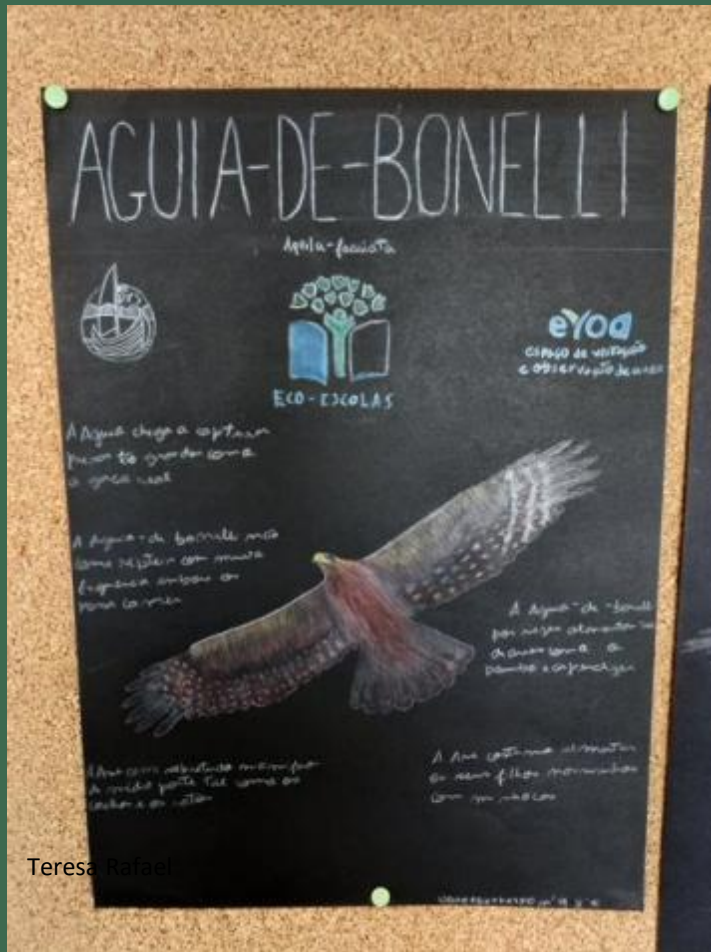 AGUIA-DE-BONELLI
Aquila-fasciata
ECO-ESCOLAS
eVOA
espaço de visitação
e observação de aves
A Aguia chega a capturar
presas tão grandes como
a garça real
A Aguia-de bonelli não
come repteis com muita
frequencia embora os
possa comer
A Aguia-de-bonelli
por vezes alimenta-se
de aves como o
pombo e as perdizes
A Ave come mamiferos
médio porte tal como os
coelhos e os ratos
A Ave costuma alimentar
os seus filhos no ninho
com
Teresa Rafael